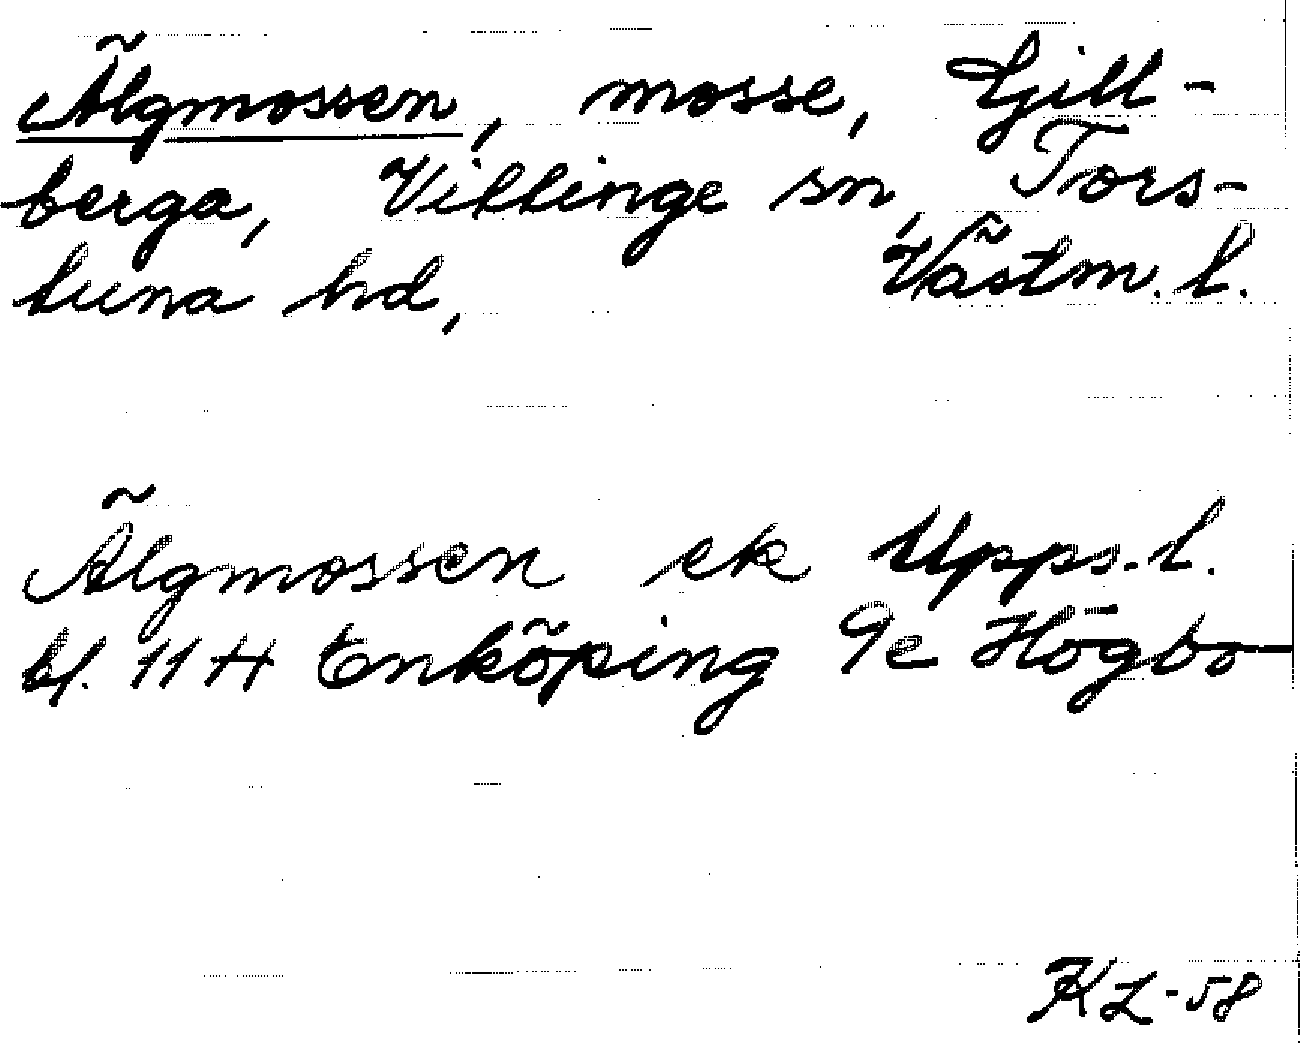 Älgmossen, mosse, Gill-
berga, Vittinge sn, Tors-
tuna hd, Västm. l.
Älgmossen ek Upps. l.
bl. 11 H Enköping 9e Högbo
KL-58